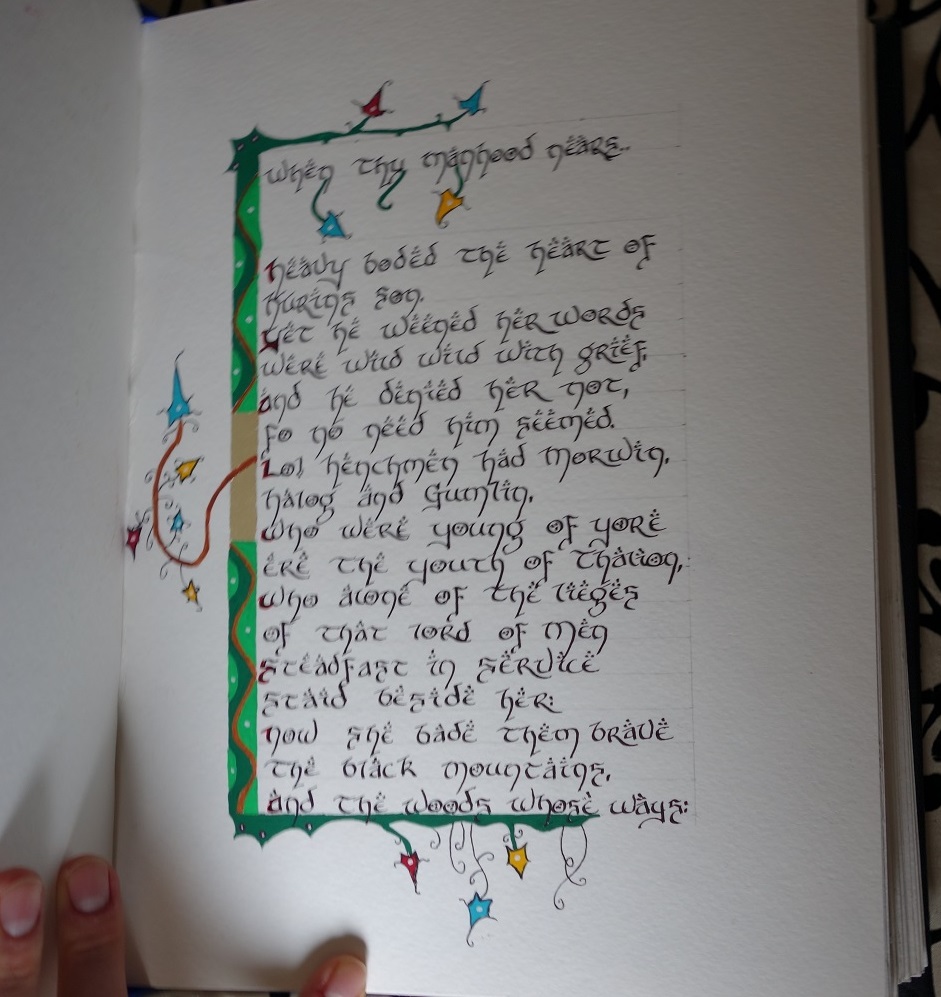 When thy manhood nears..
Heavy boded the heart of
Hurins son.
Yet he weened her words
were wild wild with grief,
and he denied her not,
fo no need him seemed.
Lo! henchmen had Morwin,
Halog and Gumlin,
who were young of yore
ere the youth of Thalion,
who alone of the lieges
of that lord of Men
steadfast in service
staid beside her:
now she bade them brave
the black mountains,
and the woods whose ways: